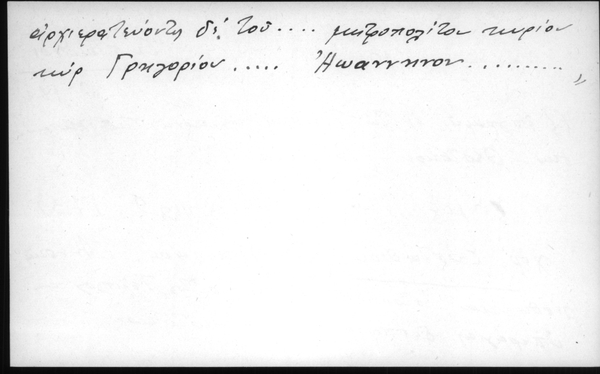 ἀρχιερατεύοντος δέ τοῦ .... μητροπολίτου κυρίου
κύρ Γρηγορίου ..... Ἰωαννίνων ..........."